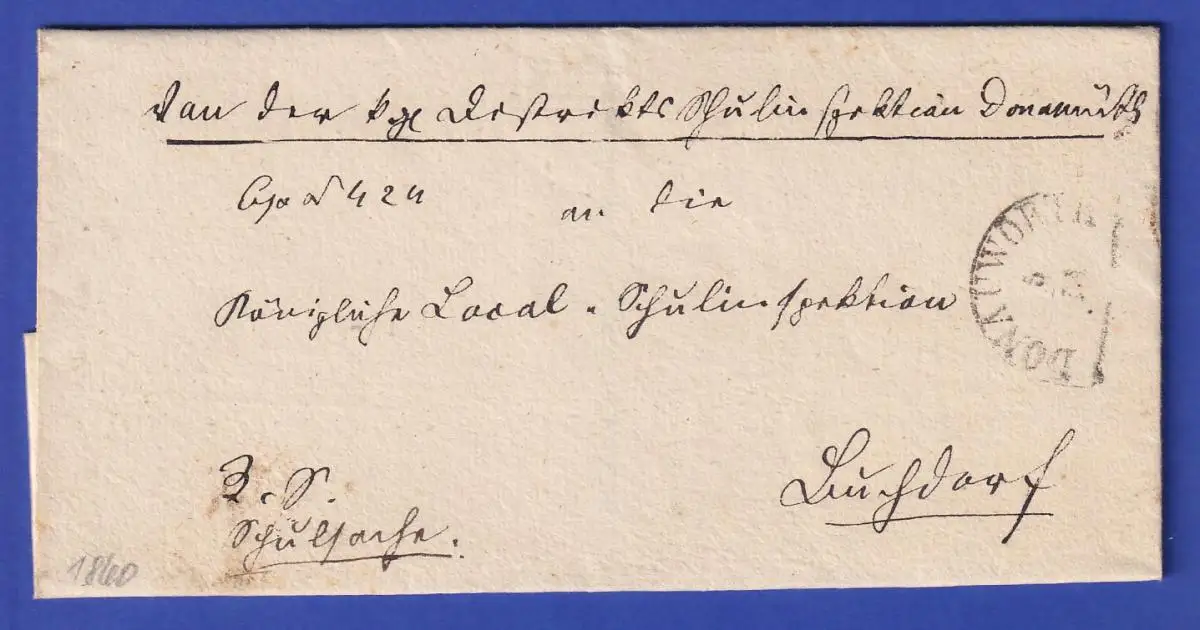 Von der kgl Destrikts Schulinspektion Donauwörth
Exp N 424 an die
DONAUWÖRTH
Königliche Local-Schulinspektion
Buchdorf
R. S.
Schulsache.
1860